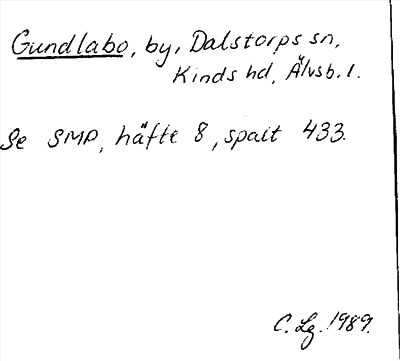 Gundlabo, by, Dalstorps sn,
Kinds hd, Älvsb. l.
Se SMP, häfte 8, spalt 433.
C. Lg. 1989.